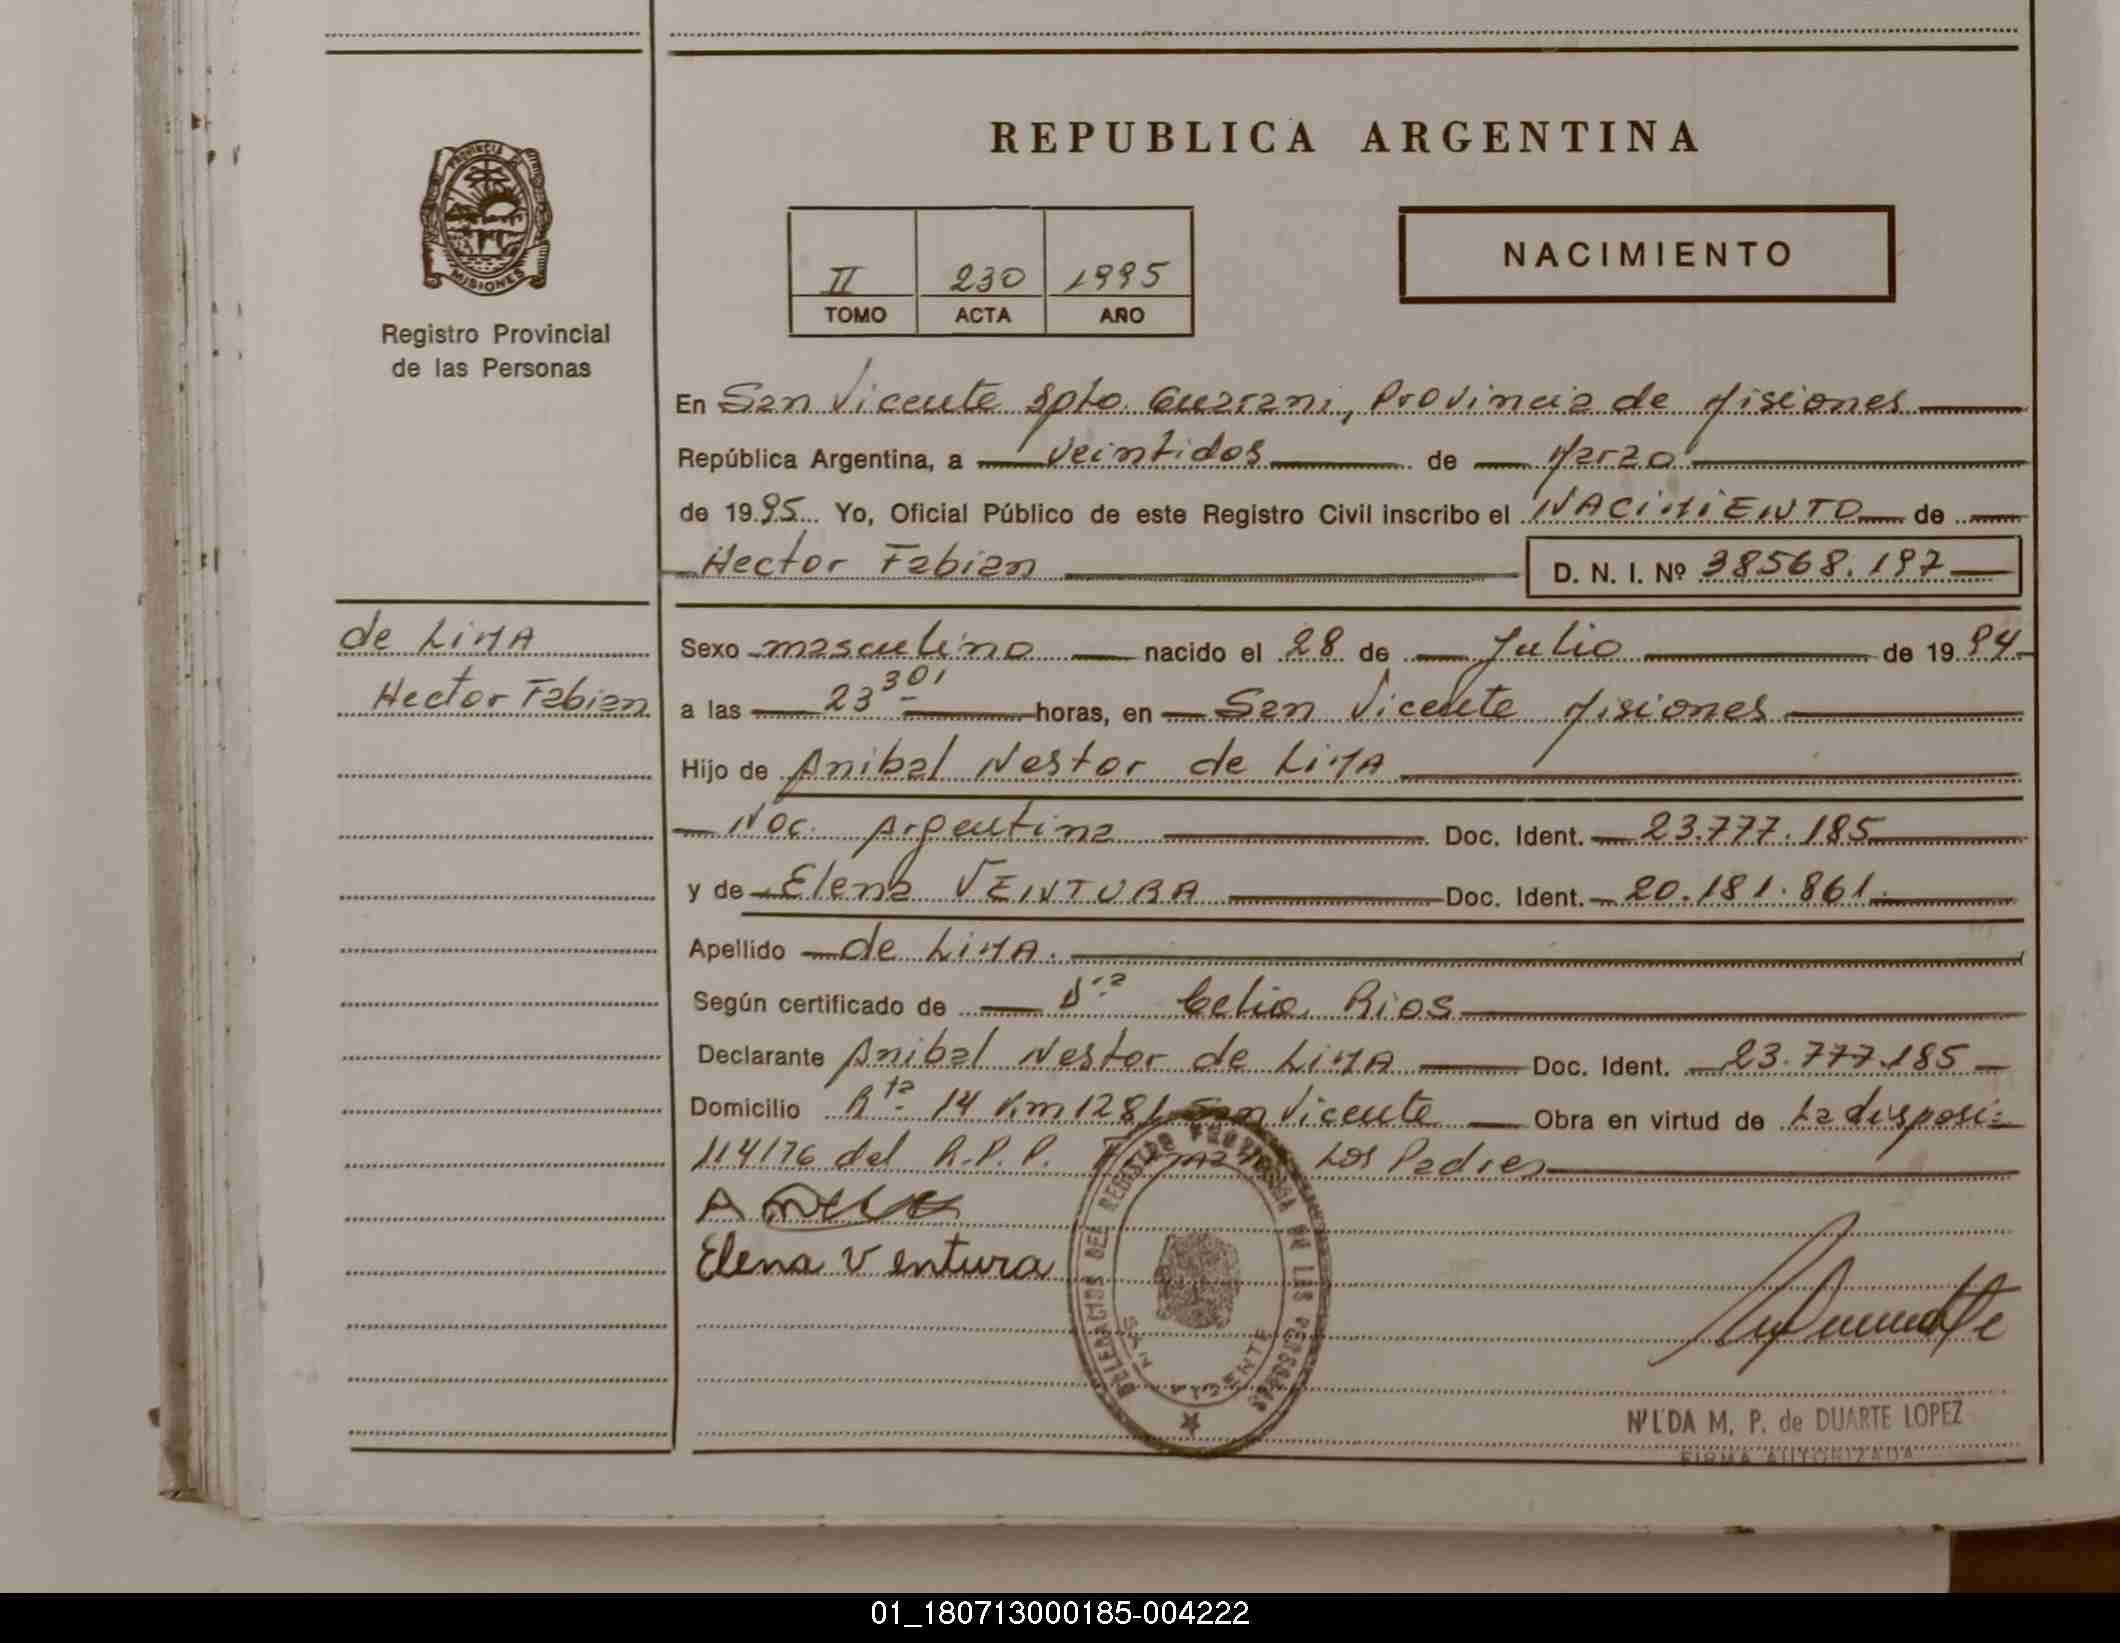 REPUBLICA ARGENTINA
PROVINCIA DE
MISIONES
Registro Provincial
de las Personas
II 230 1995
TOMO ACTA AÑO
NACIMIENTO
En San Vicente Dpto. Guarani, Provincia de Misiones
República Argentina, a veintidos de Marzo
de 1995 Yo, Oficial Público de este Registro Civil inscribo el NACIMIENTO de
Hector Fabian D. N. I. Nº 38568.197
de LIMA
Hector Fabian
Sexo masculino nacido el 28 de Julio de 1994
a las 23 30' horas, en San Vicente Misiones
Hijo de Anibal Nestor de LIMA
Nac. Argentina Doc. Ident. 23.777.185
y de Elena VENTURA Doc. Ident. 20.181.861.
Apellido de LIMA.
Según certificado de Dra Celia Rios
Declarante Anibal Nestor de LIMA Doc. Ident. 23.777.185
Domicilio Rta 14 Km 1281 San Vicente Obra en virtud de La disposi=
114/76 del R.P.P. Los Padres
Elena Ventura
DELEGACION DEL REGISTRO PROVINCIAL DE LAS PERSONAS
SAN VICENTE
NILDA M. P. de DUARTE LOPEZ
FIRMA AUTORIZADA
01_180713000185-004222